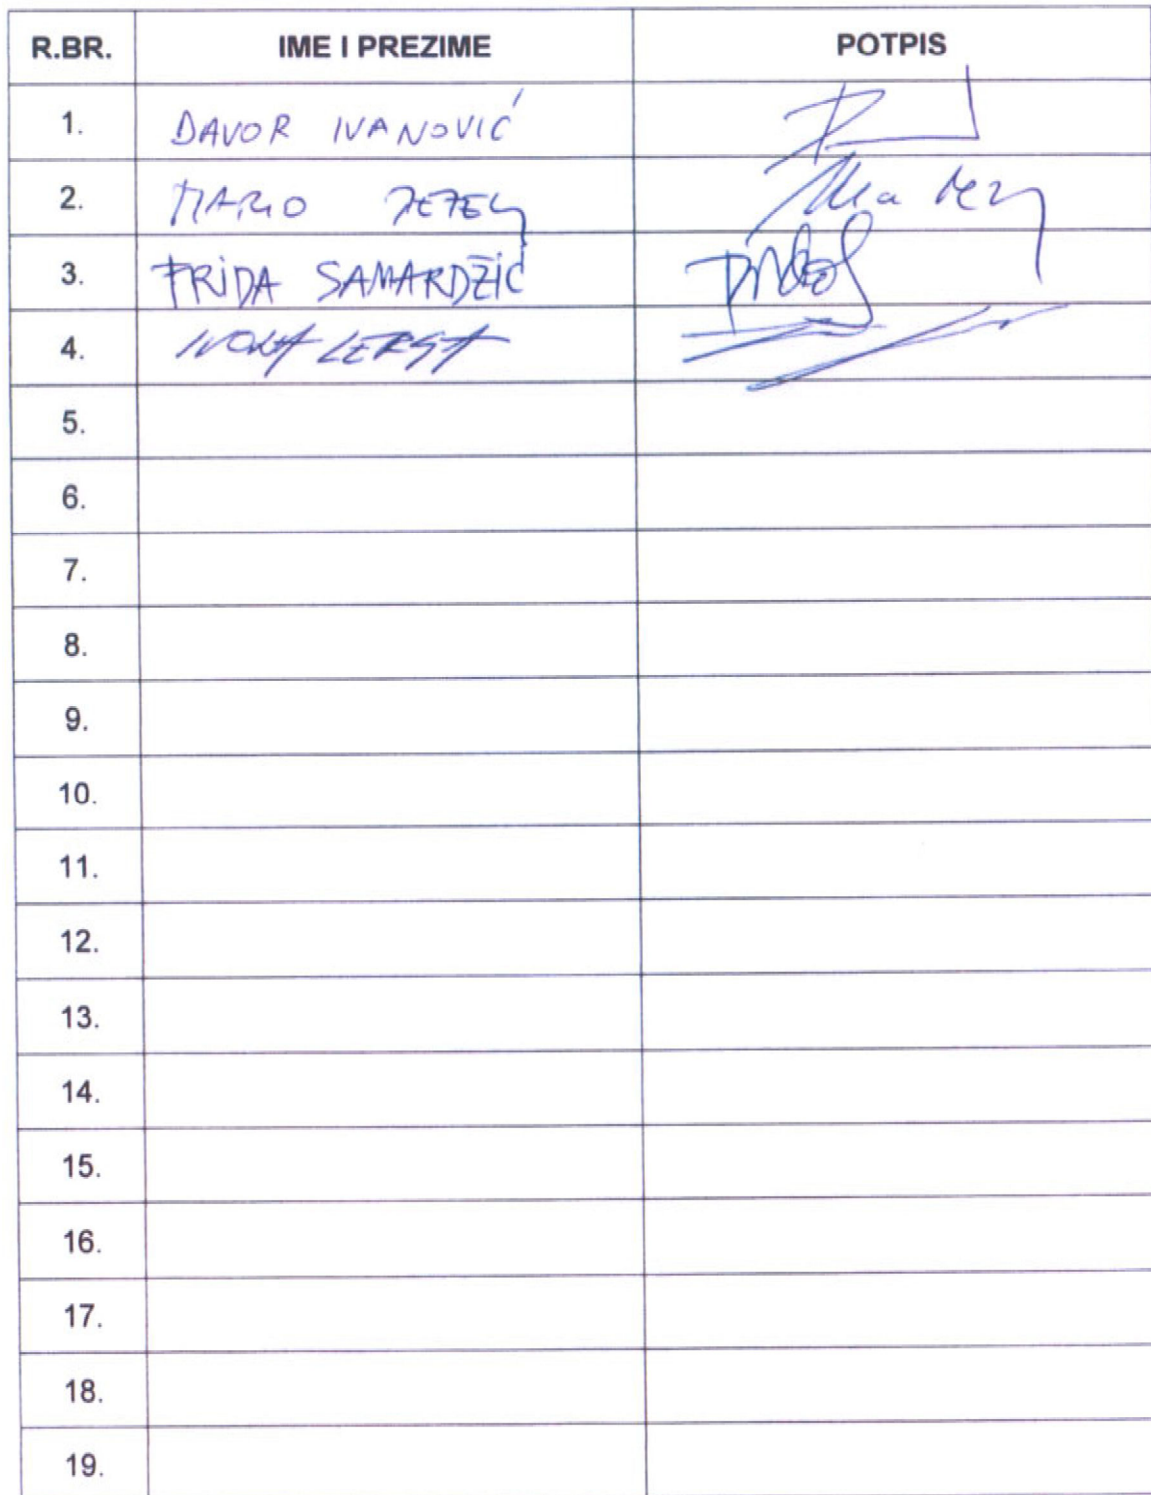 R.BR. IME I PREZIME POTPIS
1. DAVOR IVANOVIĆ
2. MARIO
3. FRIDA SAMARDŽIĆ
4. IVONA
5.
6.
7.
8.
9.
10.
11.
12.
13.
14.
15.
16.
17.
18.
19.